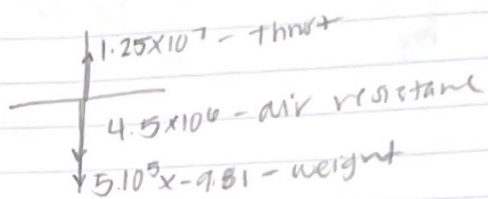 1.25×10⁷ - Thrust
4.5×10⁶ - air resistane
5.10⁵x-9.81 - weight